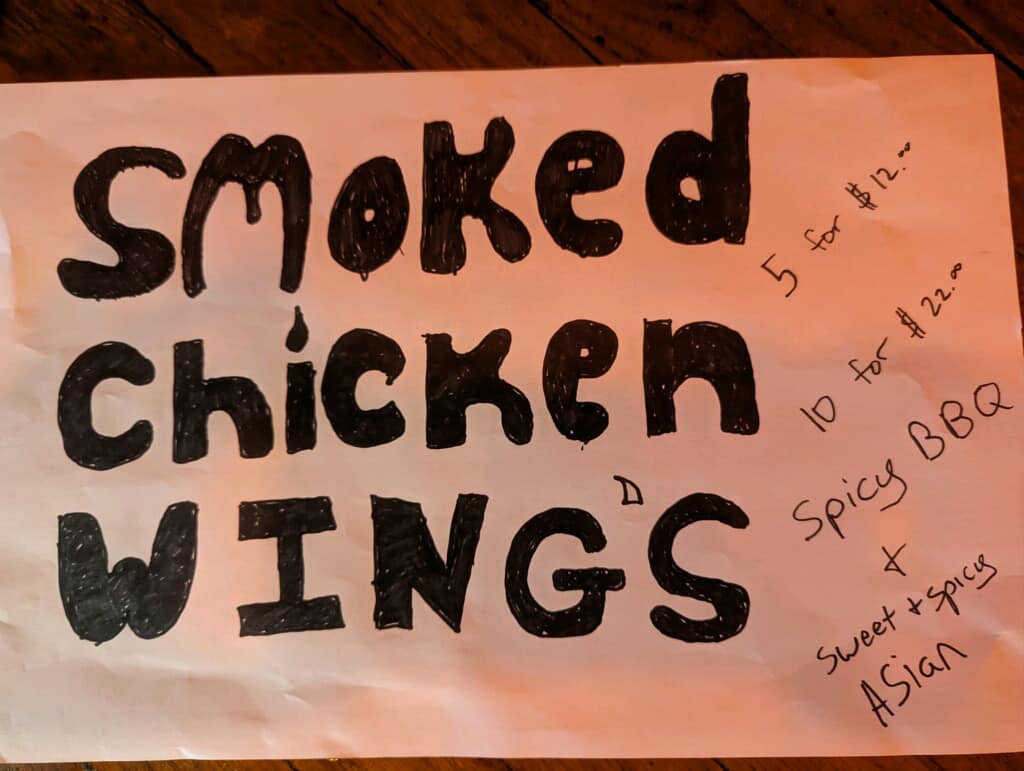 Smoked
Chicken
WING'S
5 for $12.00
10 for $22.00
Spicy BBQ
+
Sweet + Spicy
Asian